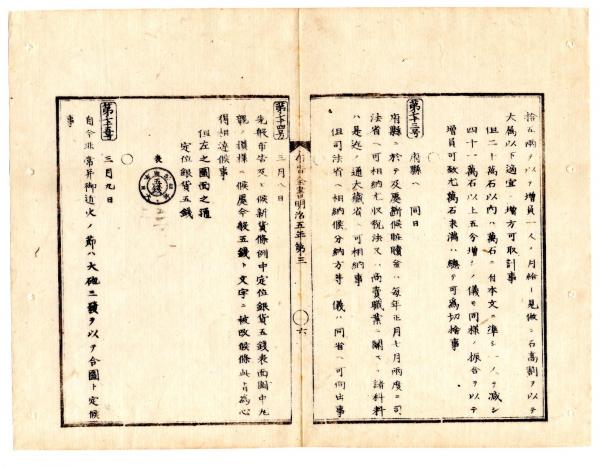 拾五兩ヲ以テ増員一人ノ月給ト見做シ石高割ヲ以テ
大属以下適宜ニ増方可取計事
但二十萬石以内ハ萬石ニ付本文ニ準シ一人ヲ減シ
四十一萬石以上五分増シノ儀モ同様ノ振合ヲ以テ
増員可致尤萬石未満ハ總テ可為切捨事
第七十三号
府縣ヘ 同日
府縣ニ於テ及處斷候贓贖金ハ毎年正月七月兩度ニ司
法省ヘ可相納尤収税法又ハ商賣職業ニ關スル諸科料
ハ是迄ノ通大藏省ヘ可相納事
但司法省ヘ相納候分納方等ノ儀ハ同省ヘ可伺出事
布告全書明治五年第三
六
第七十四号
三月八日
先般布告及ヒ候新貨條例中定位銀貨五錢表面圖中九
觀ノ模様ニ候處今般五錢ト文字ニ被改候條此旨為心
得相達候事
但左之圖面之通
定位銀貨五錢
表
五錢
第七十五号
三月九日
自今非常并御近火ノ節ハ大砲三發ヲ以テ合圖ト定候
事